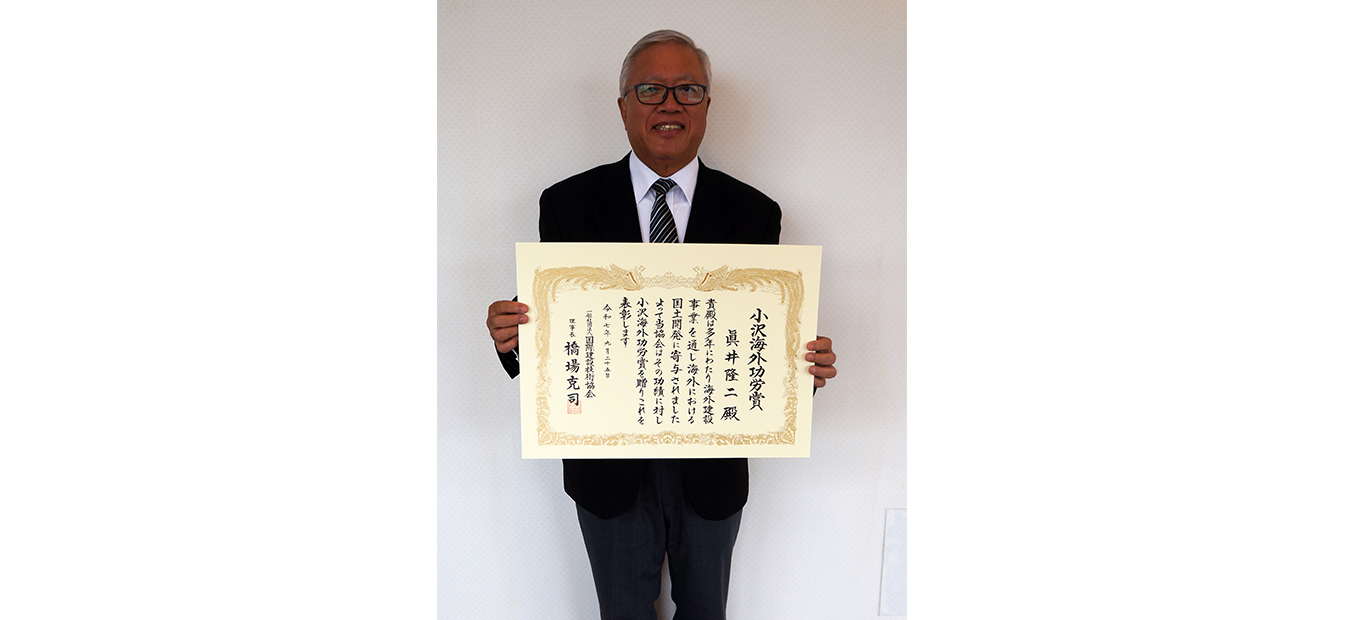 小沢海外功労賞
眞井隆二殿
貴殿は多年にわたり海外建設
事業を通し海外における
国土開発に寄与されました
よって当協会はその功績に対し
小沢海外功労賞を贈りこれを
表彰します
令和七年九月二十五日
一般社団法人国際建設技術協会
理事長 橋場克司